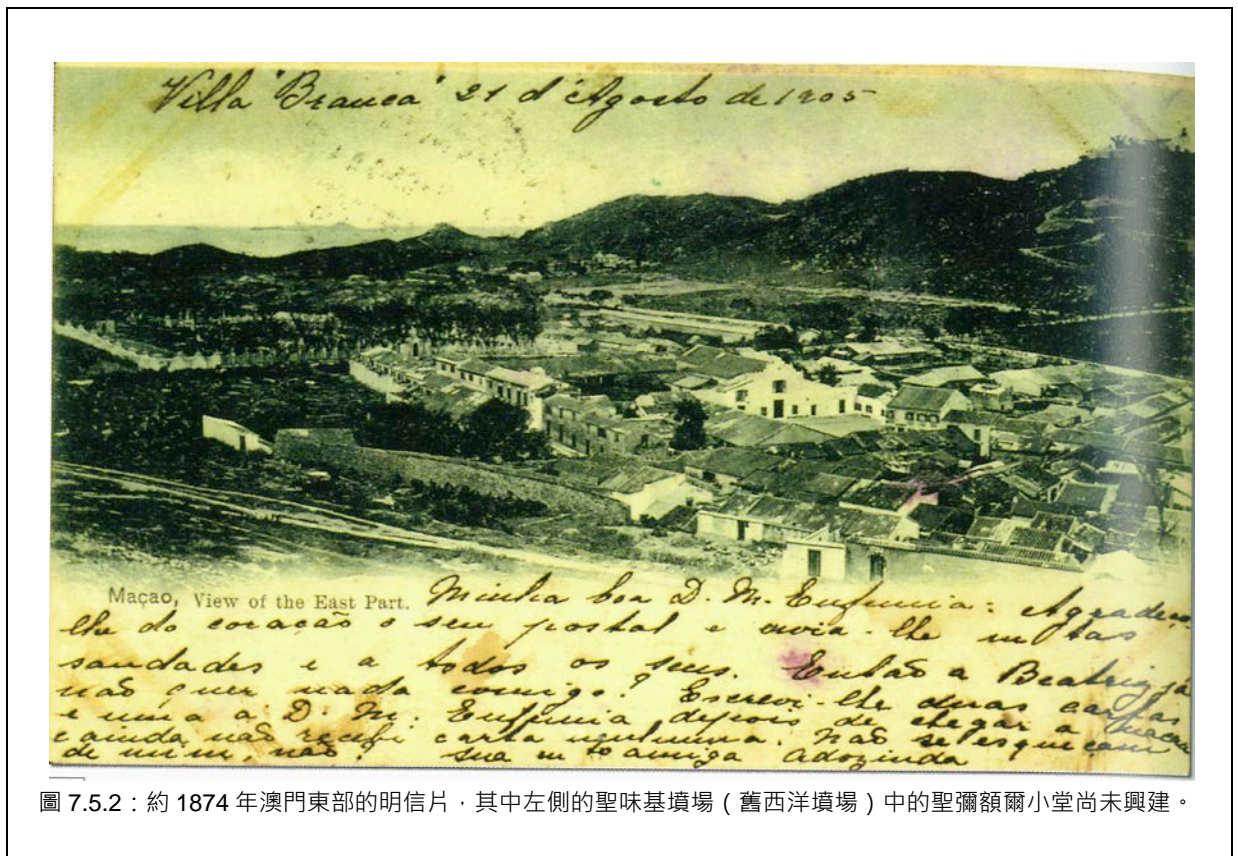 Villa "Branca" 21 d'Agosto de 1905
Maçao, View of the East Part.
Minha boa D. M. Eufemia: Agradeço
lhe do coração o seu postal e envia-lhe mtas
saudades e a todos os seus. Então a Beatriz já
não quer nada comigo? Escrevi-lhe duas cartas
e uma a D. M. Eufemia depois de chegar a Macau
e ainda não recebi carta nenhuma. Não se esqueçam
de mim, não? Sua mto amiga Adozinda
圖 7.5.2：約 1874 年澳門東部的明信片，其中左側的聖味基墳場（舊西洋墳場）中的聖彌額爾小堂尚未興建。